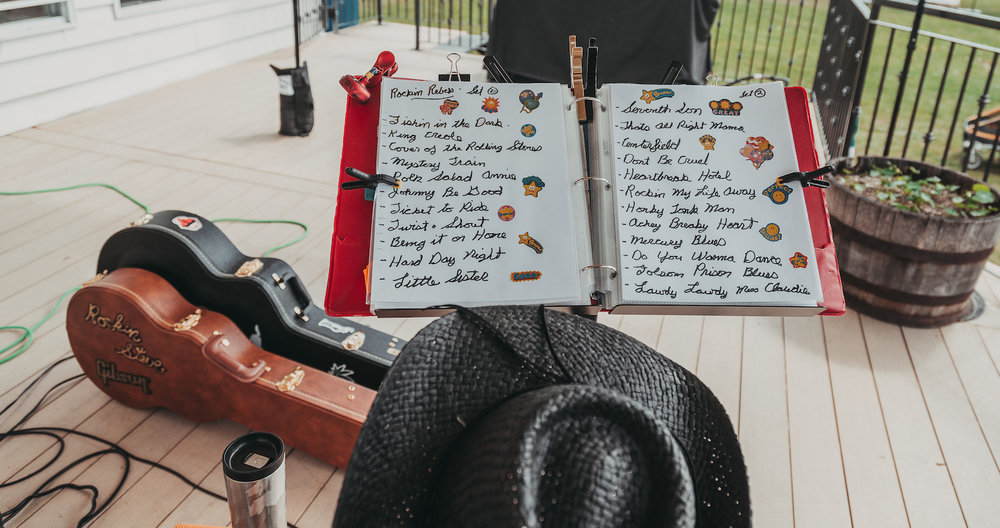 Rockin Rebels - Set ①
- Fishin in the Dark.
- King Creole
- Cover of the Rolling Stones
- Mystery Train
- Polk Salad Annie
- Johnny Be Good
- Ticket to Ride
- Twist + Shout
- Bring it on Home
- Hard Day Night
- Little Sister
Set ②
- Seventh Son
GREAT
- Thats all Right Mama
- Centerfield
- Dont Be Cruel
- Heartbreak Hotel
- Rockin My Life Away
- Honky Tonk Man
- Achey Breaky Heart
- Mercury Blues
- Do You Wanna Dance
- Folsom Prison Blues
- Lawdy Lawdy Miss Claudie
Rockin
Steve
Gibson